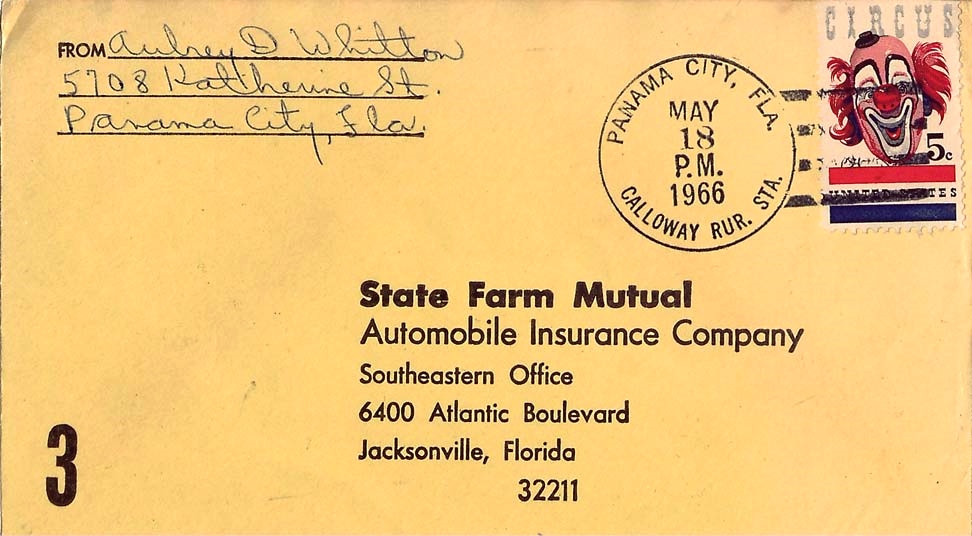 FROM Aubrey D Whitton
5708 Katherine St.
Panama City, Fla.
PANAMA CITY, FLA.
MAY
18
P.M.
1966
CALLOWAY RUR. STA.
CIRCUS
5c
UNITED STATES
State Farm Mutual
Automobile Insurance Company
Southeastern Office
6400 Atlantic Boulevard
Jacksonville, Florida
32211
3